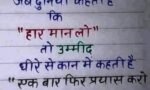 जब दुनिया कहती है
कि
"हार मान लो"
तो उम्मीद
धीरे से कान में कहती है
"एक बार फिर प्रयास करो